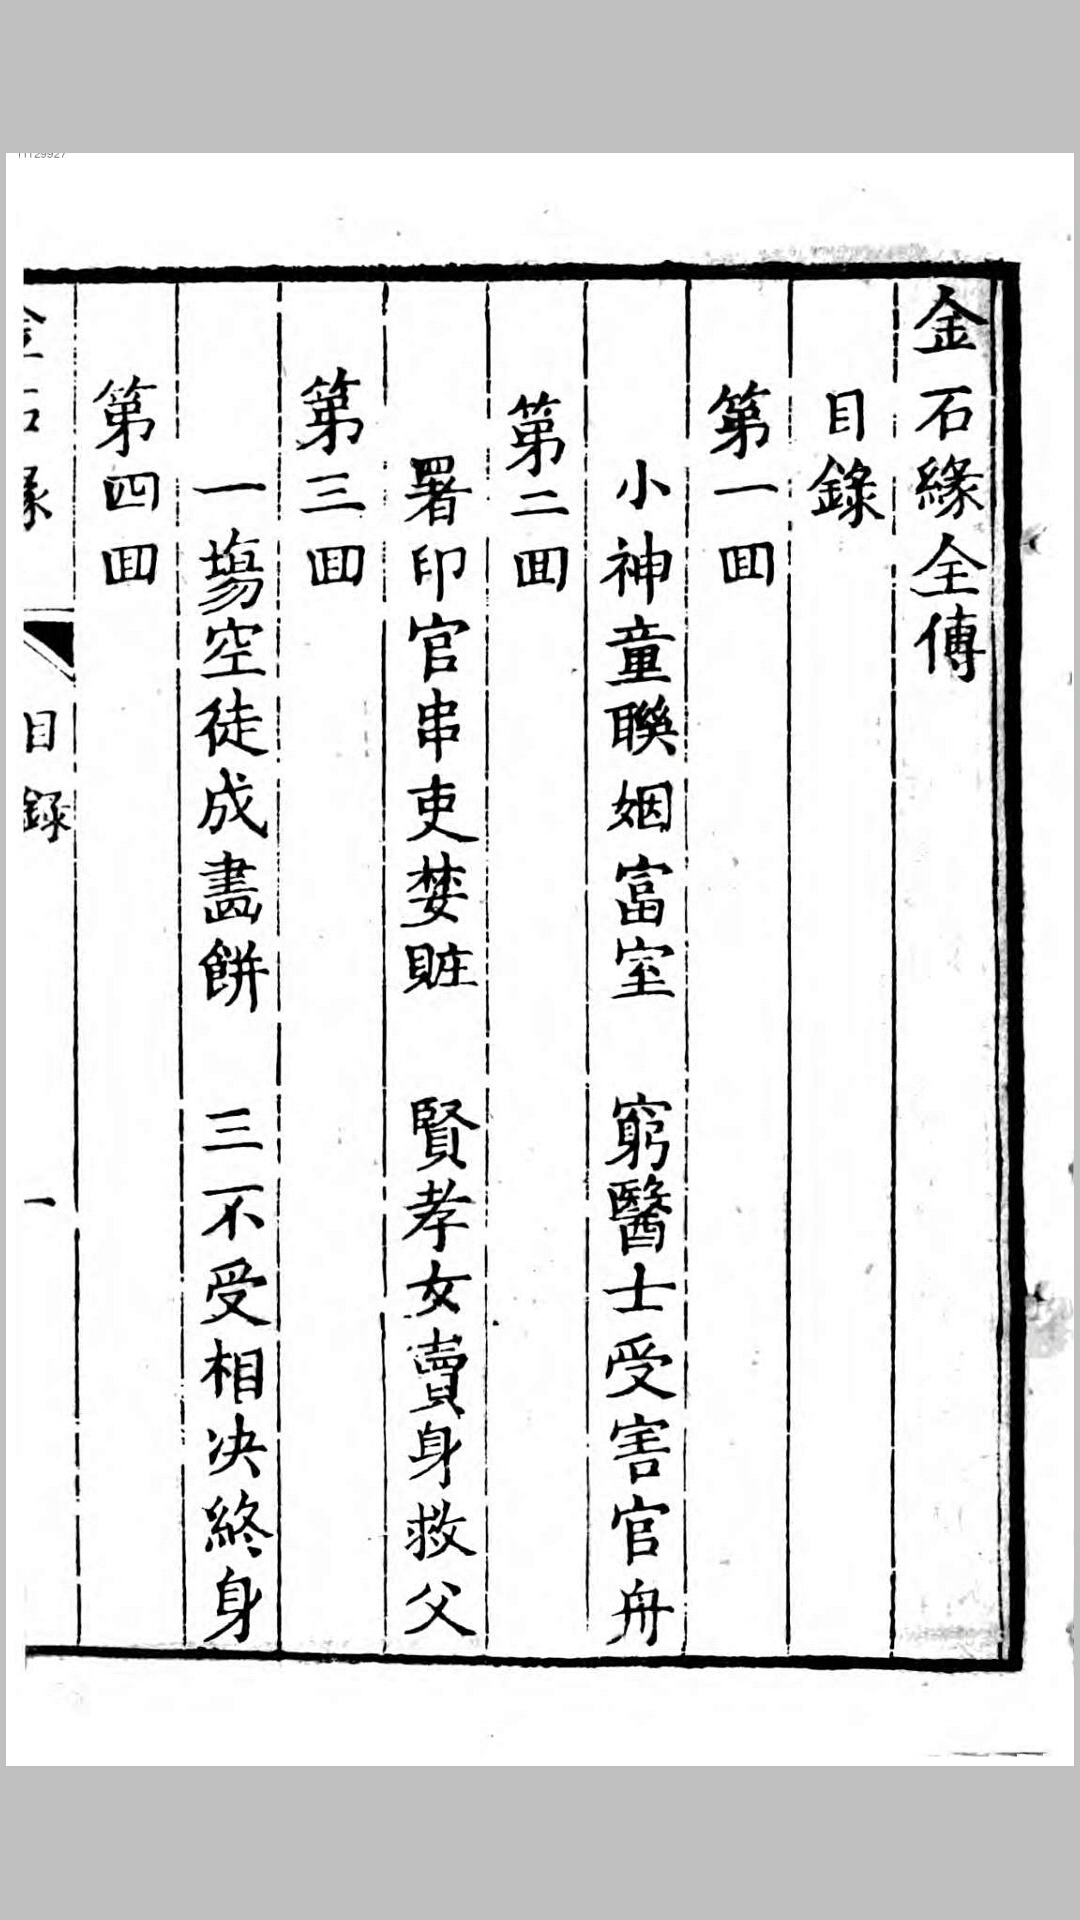 金石緣全傳
目錄
第一回
小神童聯姻富室　窮醫士受害官舟
第二回
署印官串吏婪賍　賢孝女賣身救父
第三回
一塲空徒成畵餅　三不受相决終身
第四回
金石緣　目録　一